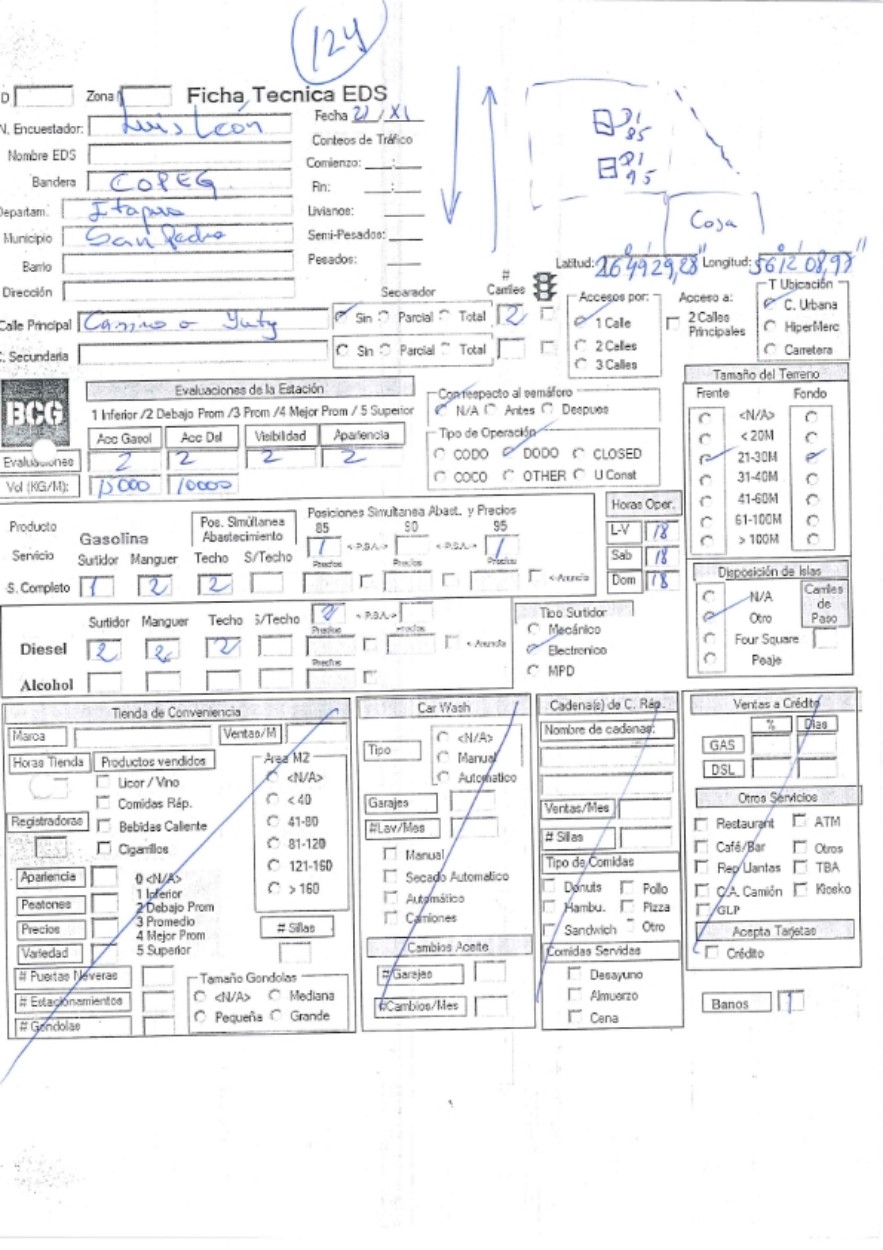 124
D Zona Ficha Tecnica EDS
N. Encuestador: Luis León
Fecha 22 / XI
Nombre EDS
Conteos de Tráfico
Bandera COPEG
Comienzo: :
Fin: :
Departam. Itapua
Livianos:
Municipio San Pedro
Semi-Pesados:
Barrio
Pesados:
Dirección
DI 85
DI 95
Casa
Latitud: 26 49 29,28" Longitud: 56 12 08,97"
Calle Principal Camino a Yuty
Separador
# Carriles
Sin Parcial Total 2
C. Secundaria
Sin Parcial Total
Accesos por:
1 Calle
2 Calles
3 Calles
Acceso a:
2 Calles Principales
T Ubicación
C. Urbana
HiperMerc
Carretera
BCG
Evaluaciones de la Estación
1 Inferior /2 Debajo Prom /3 Prom /4 Mejor Prom / 5 Superior
Acc Gasol Acc Dsl Visibilidad Apariencia
Evaluaciones 2 2 2 2
Vol (KG/M): 15000 10000
Con respecto al semáforo
N/A Antes Despues
Tipo de Operación
CODO DODO CLOSED
COCO OTHER U Const
Tamaño del Terreno
Frente Fondo
<N/A>
< 20M
21-30M
31-40M
41-60M
61-100M
> 100M
Producto
Gasolina
Pos. Simúltanea Abastecimiento
Posiciones Simultanea Abast. y Precios
85 90 95
Servicio Surtidor Manguer Techo S/Techo
1 < P.S.A.> < P.S.A.> 1
Precios Precios Precios
S. Completo 1 2 2
< Anuncia
Horas Oper.
L-V 18
Sab 18
Dom 18
Disposición de Islas
N/A
Otro
Four Square
Peaje
Carriles de Paso
Surtidor Manguer Techo S/Techo 2 < P.S.A.>
Precios Precios
Diesel 2 2 2
< Anuncia
Precios
Alcohol
Tipo Surtidor
Mecánico
Electronico
MPD
Tienda de Conveniencia
Marca Ventas/M
Horas Tienda Productos vendidos
Licor / Vino
Comidas Ráp.
Registradoras Bebidas Caliente
Cigarrillos
Area M2
<N/A>
< 40
41-80
81-120
121-160
> 160
Apariencia
Peatones
Precios
Variedad
0 <N/A>
1 Inferior
2 Debajo Prom
3 Promedio
4 Mejor Prom
5 Superior
# Sillas
# Puertas Neveras
# Estacionamientos
# Gondolas
Tamaño Gondolas
<N/A> Mediana
Pequeña Grande
Car Wash
Tipo
<N/A>
Manual
Automatico
Garajes
#Lav/Mes
Manual
Secado Automatico
Automático
Camiones
Cambios Aceite
# Garajes
#Cambios/Mes
Cadena(s) de C. Ráp.
Nombre de cadenas:
Ventas/Mes
# Sillas
Tipo de Comidas
Donuts Pollo
Hambu. Pizza
Sandwich Otro
Comidas Servidas
Desayuno
Almuerzo
Cena
Ventas a Crédito
% Dias
GAS
DSL
Otros Servicios
Restaurant ATM
Café/Bar Otros
Rep Llantas TBA
C.A. Camión Kiosko
GLP
Acepta Tarjetas
Crédito
Banos 1